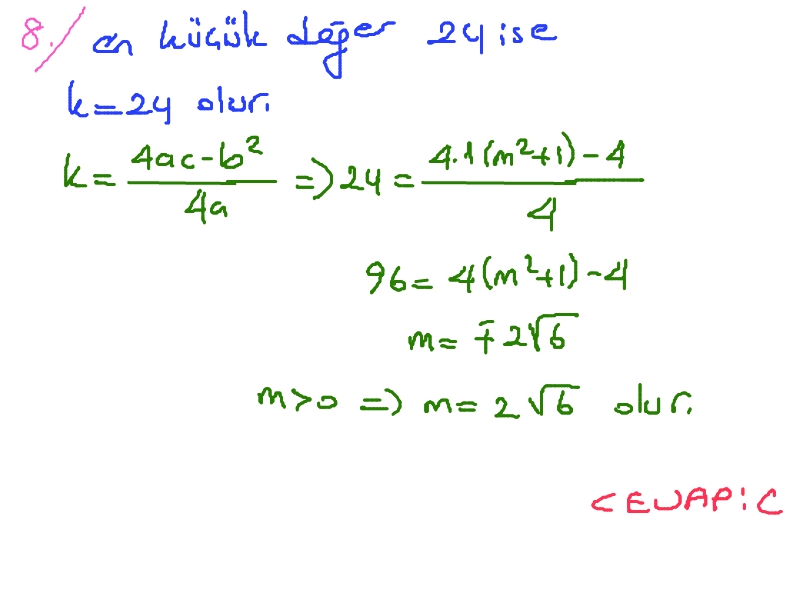 8./ en küçük değer 24 ise
k=24 olur.
k= 4ac-b²/4a => 24 = 4.1(m²+1)-4/4
96= 4(m²+1)-4
m= ∓2√6
m>0 => m= 2√6 olur.
CEVAP:C